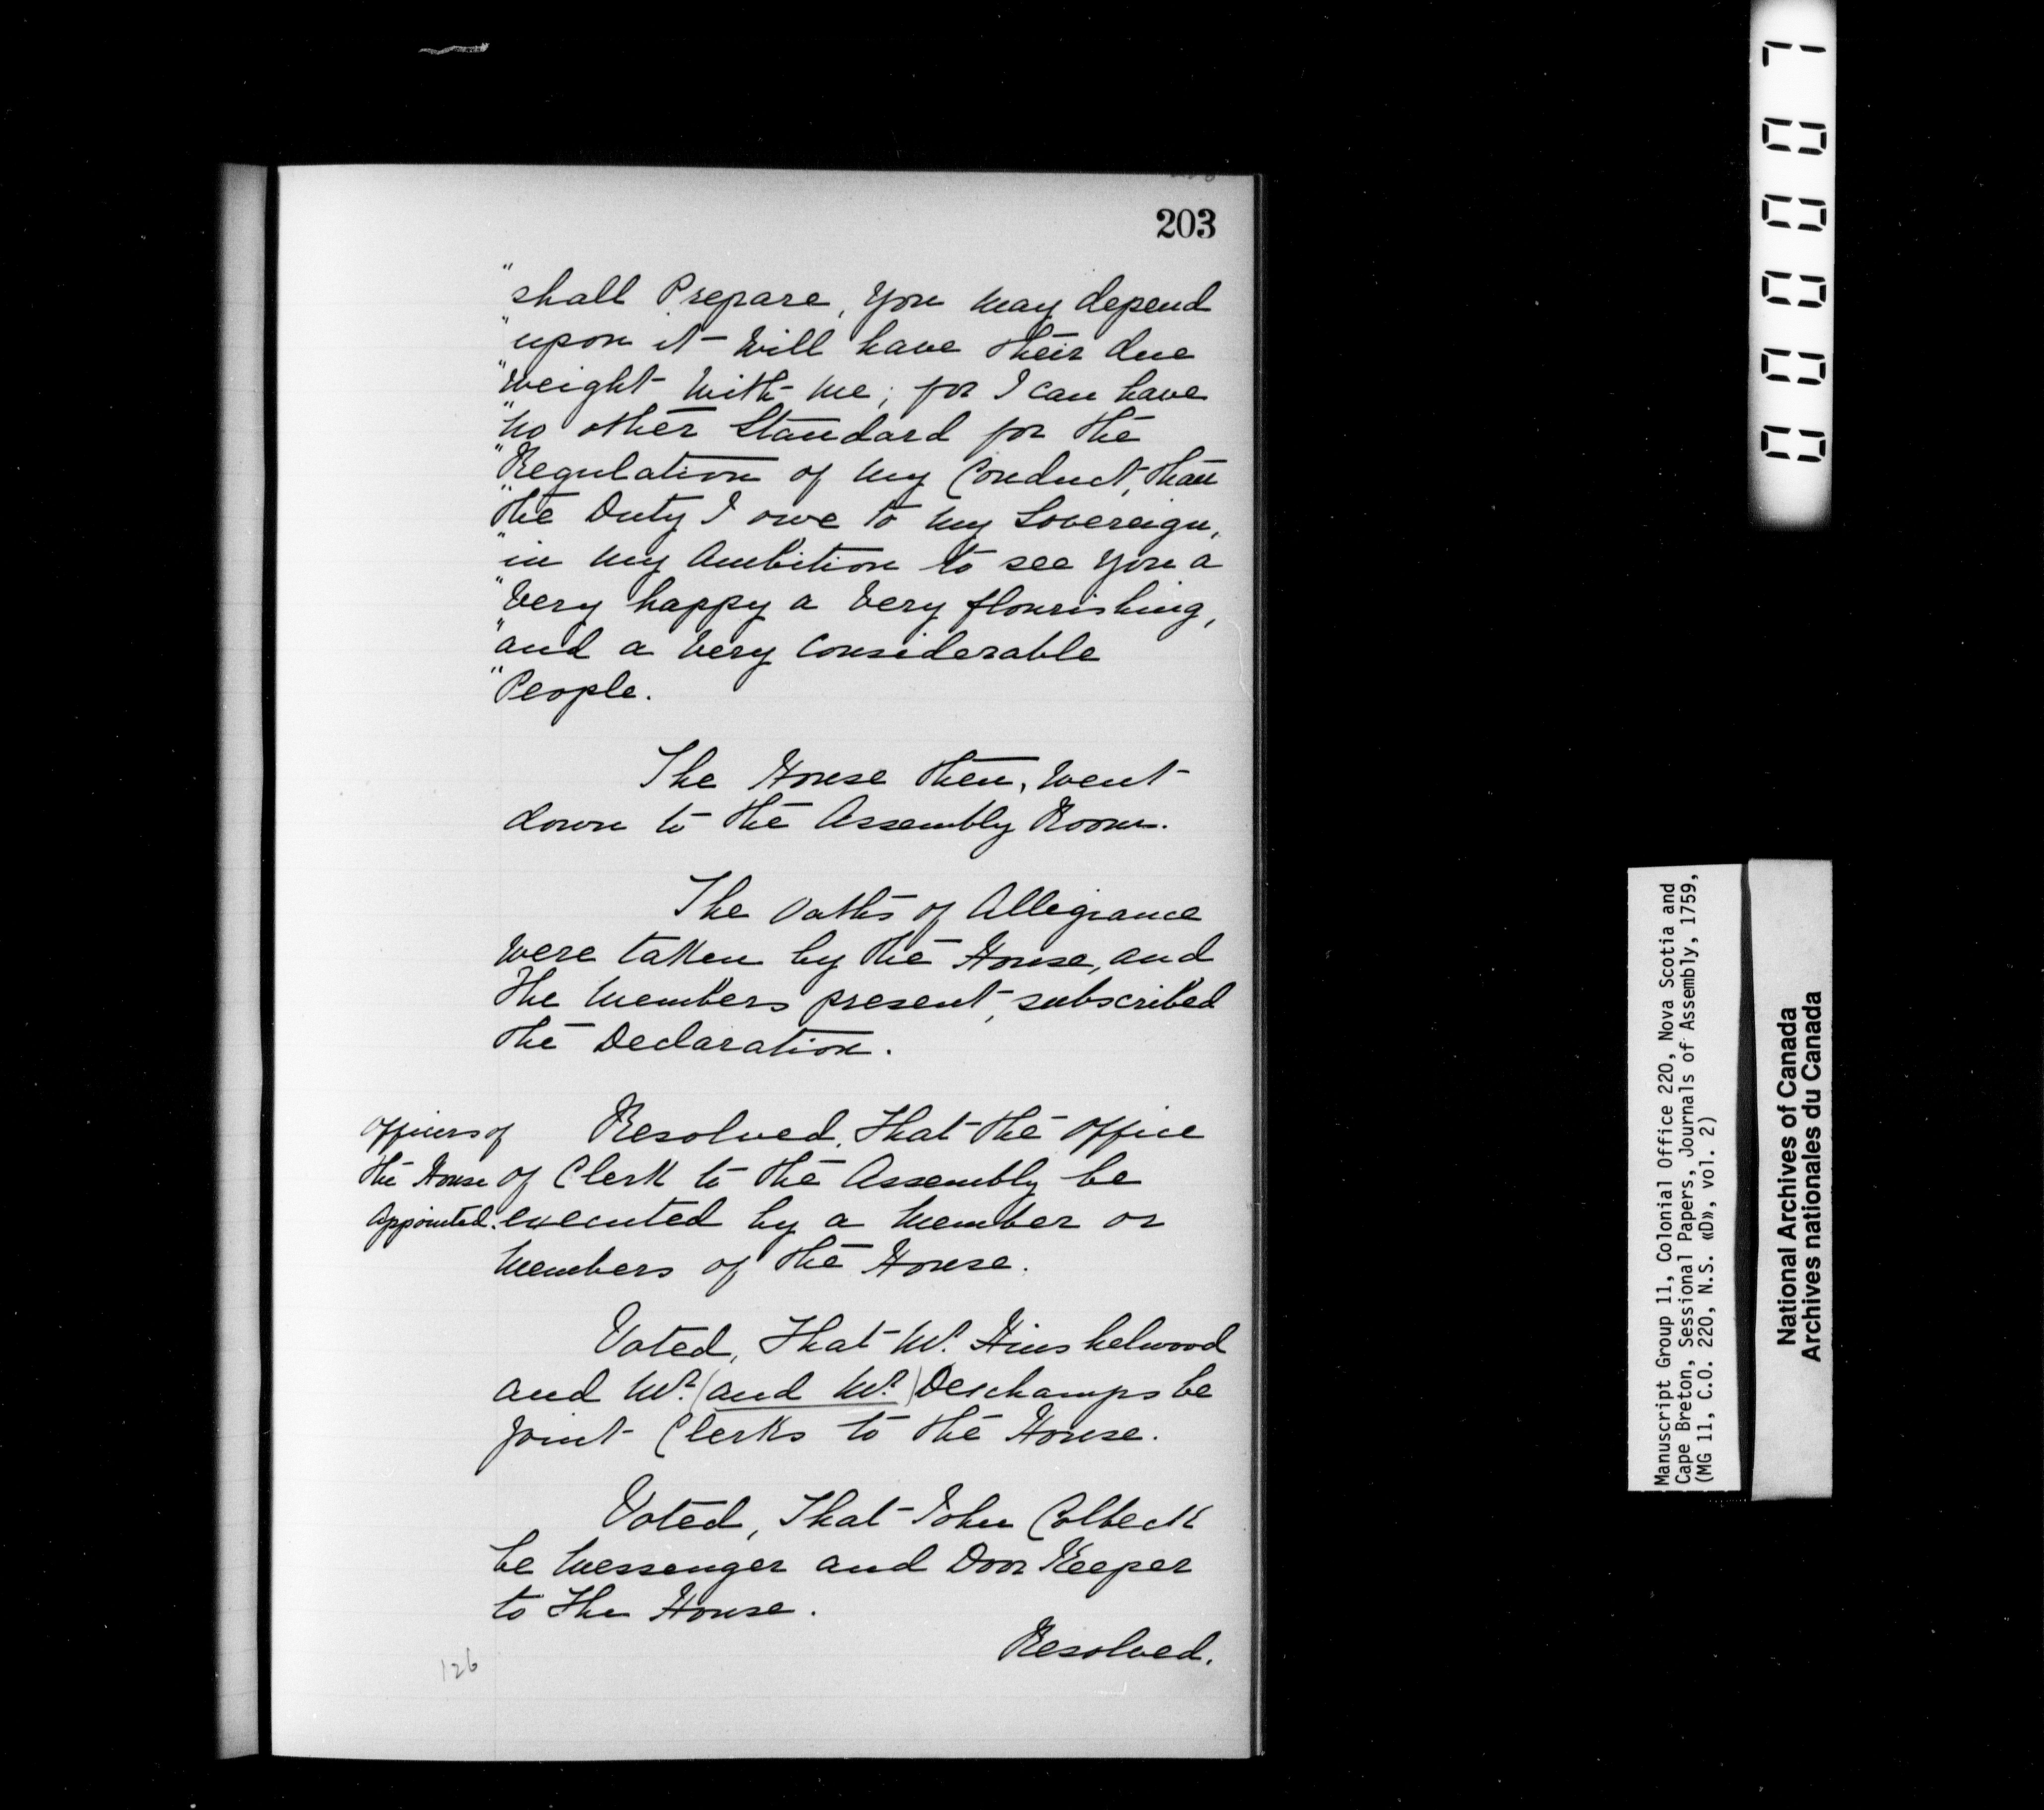 203
"shall Prepare, you may depend
"upon it will have their due
"weight with me; for I can have
"no other Standard for the
"Regulation of my Conduct, than
"the Duty I owe to my Sovereign,
"in my Ambition to see you a
"very happy a very flourishing,
"and a very considerable
"People.
The House then, went
down to the Assembly Room.
The Oaths of Allegiance
were taken by the House, and
the members present, subscribed
the Declaration.
Officers of
the House
Appointed.
Resolved, That the office
of Clerk to the Assembly be
executed by a member or
members of the House.
Voted, That Mr. Hinshelwood
and Mr. (and Mr.) Deschamps be
joint Clerks to the House.
Voted, That John Colbeck
be messenger and Door Keeper
to the House.
Resolved.
126
000007
Manuscript Group 11, Colonial Office 220, Nova Scotia and
Cape Breton, Sessional Papers, Journals of Assembly, 1759,
(MG 11, C.O. 220, N.S. «D», vol. 2)
National Archives of Canada
Archives nationales du Canada